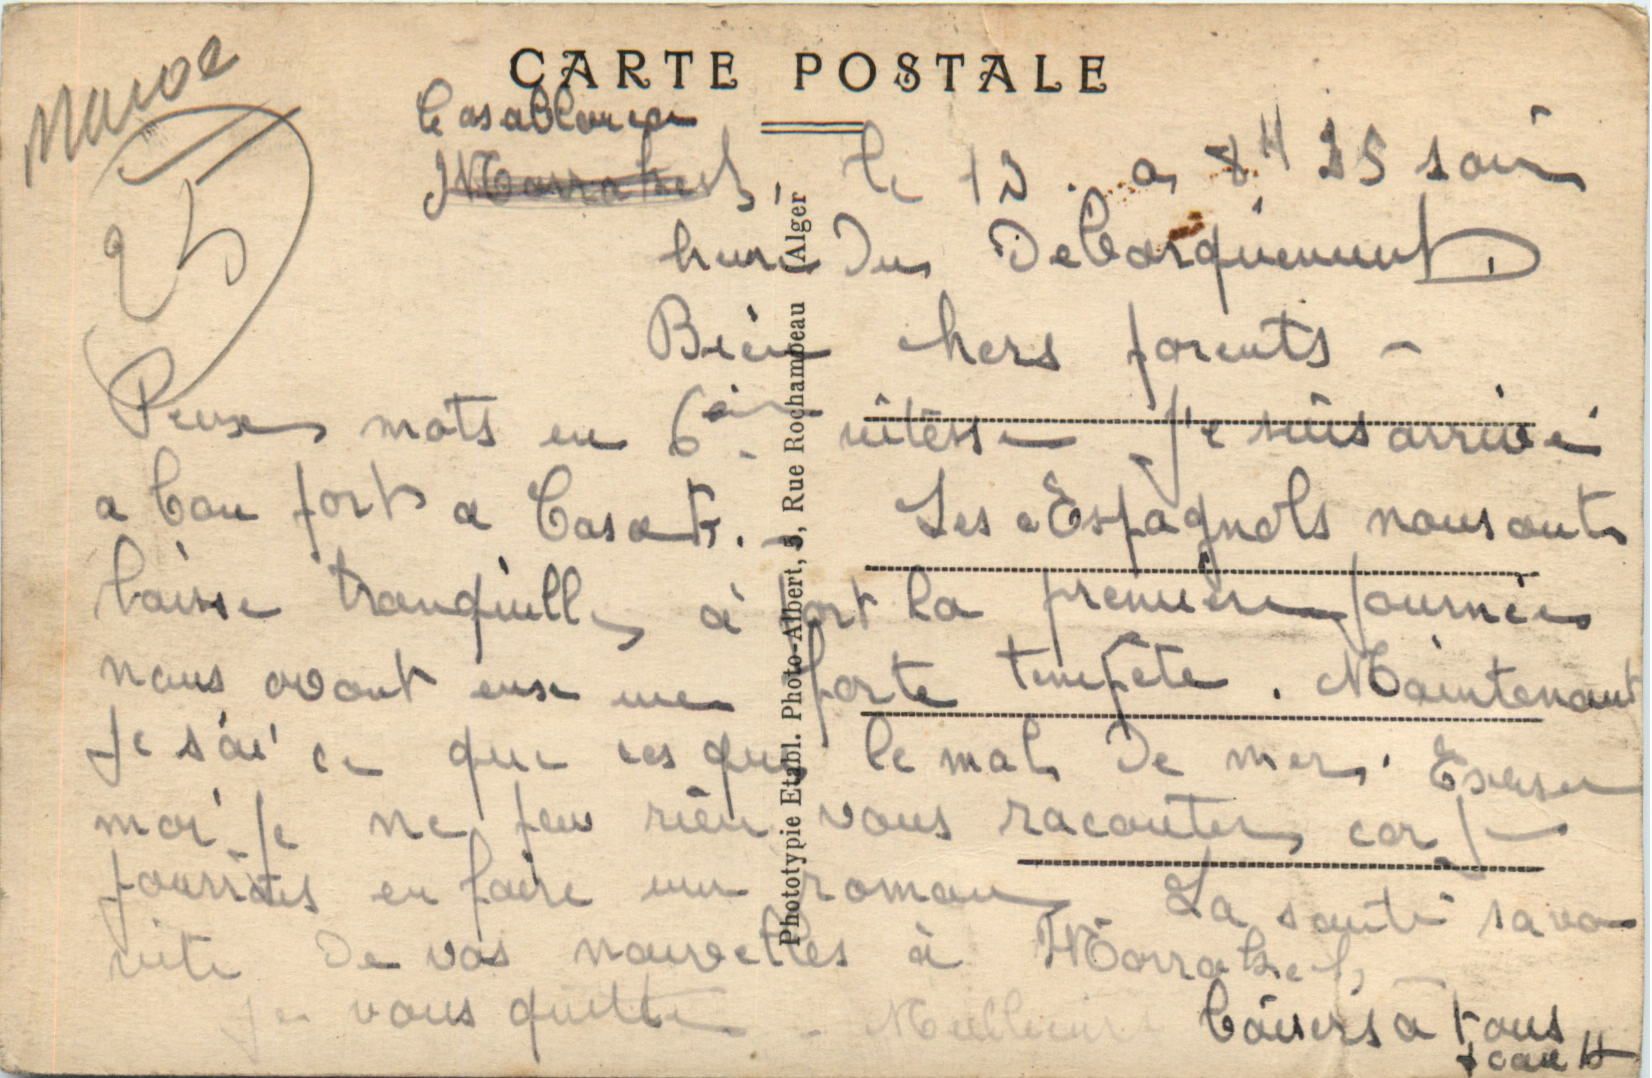 CARTE POSTALE
Maroc
25
Casablanca
Marrakech
le 13. a 8H 25 soir
heure Du Debarquement
Bien chers parents -
Deux mots en 6èm vitesse - Je suis arrivé
a bon port a Casa. - Les Espagnols nous ont
laisse tranquille, à part la première journée
nous avont eux une forte tempête. Maintenant
je s'ai ce que ces que le mal De mer. Excuser
moi je ne peu rien vous raconter, car je
pourrais en faire un roman. La santé sa va
vite De vos nouvelles à Marrakech,
je vous quitte - Meilleurs baisers a tous
Phototypie Etabl. Photo-Albert, 3, Rue Rochambeau (Alger